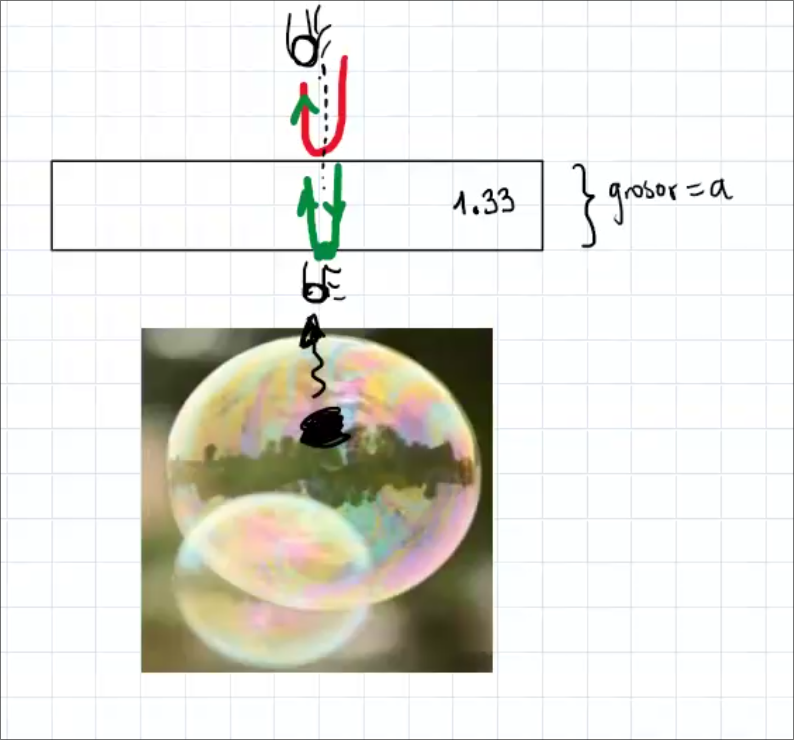 1.33
grosor = a